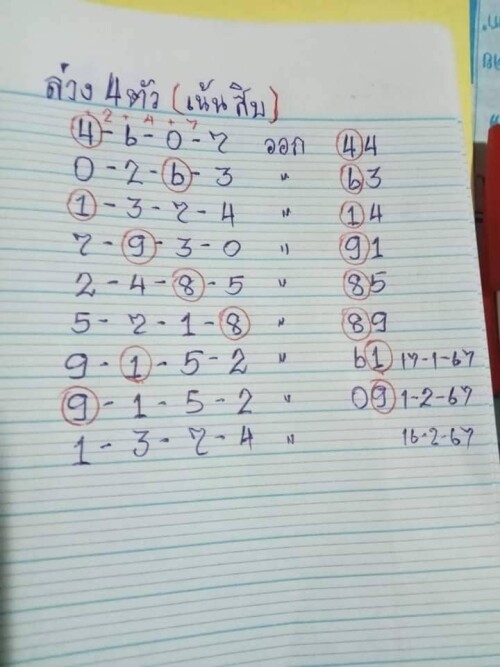 ล่าง 4 ตัว (เน้นสิบ)
2 + 4 + 7
4 - 6 - 0 - 7 ออก 44
0 - 2 - 6 - 3 " 63
1 - 3 - 7 - 4 " 14
7 - 9 - 3 - 0 " 91
2 - 4 - 8 - 5 " 85
5 - 7 - 1 - 8 " 89
9 - 1 - 5 - 2 " 61 17-1-67
9 - 1 - 5 - 2 " 09 1-2-67
1 - 3 - 7 - 4 " 16-2-67